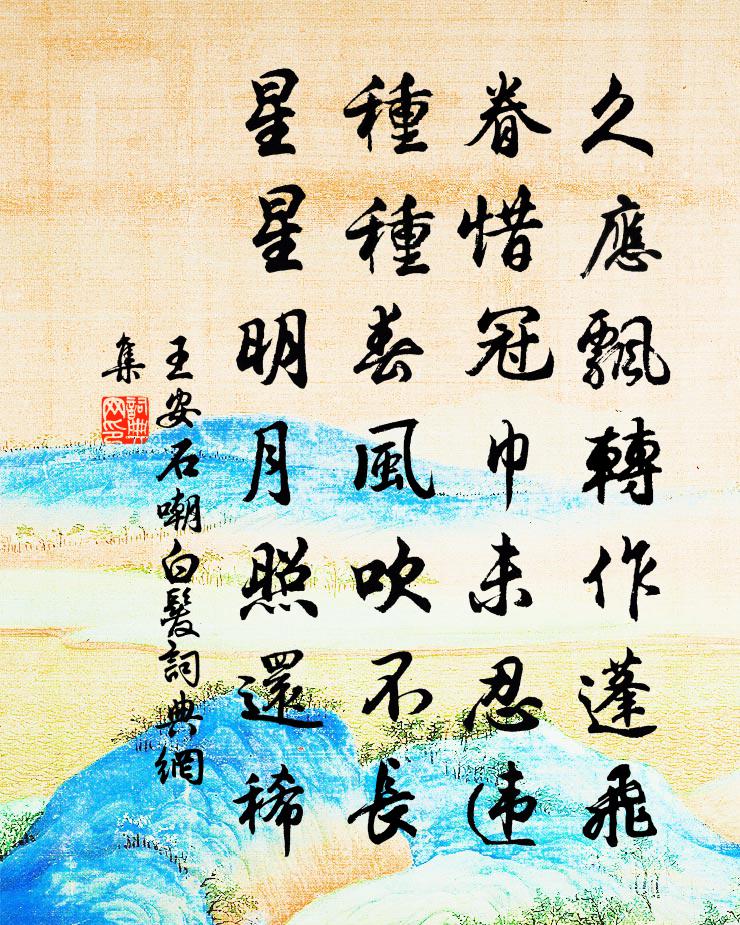 久應飄轉作蓬飛
眷惜冠巾未忍违
種種春風吹不長
星星明月照還稀
王安石嘲白髮詞典網
集
詞典
网印